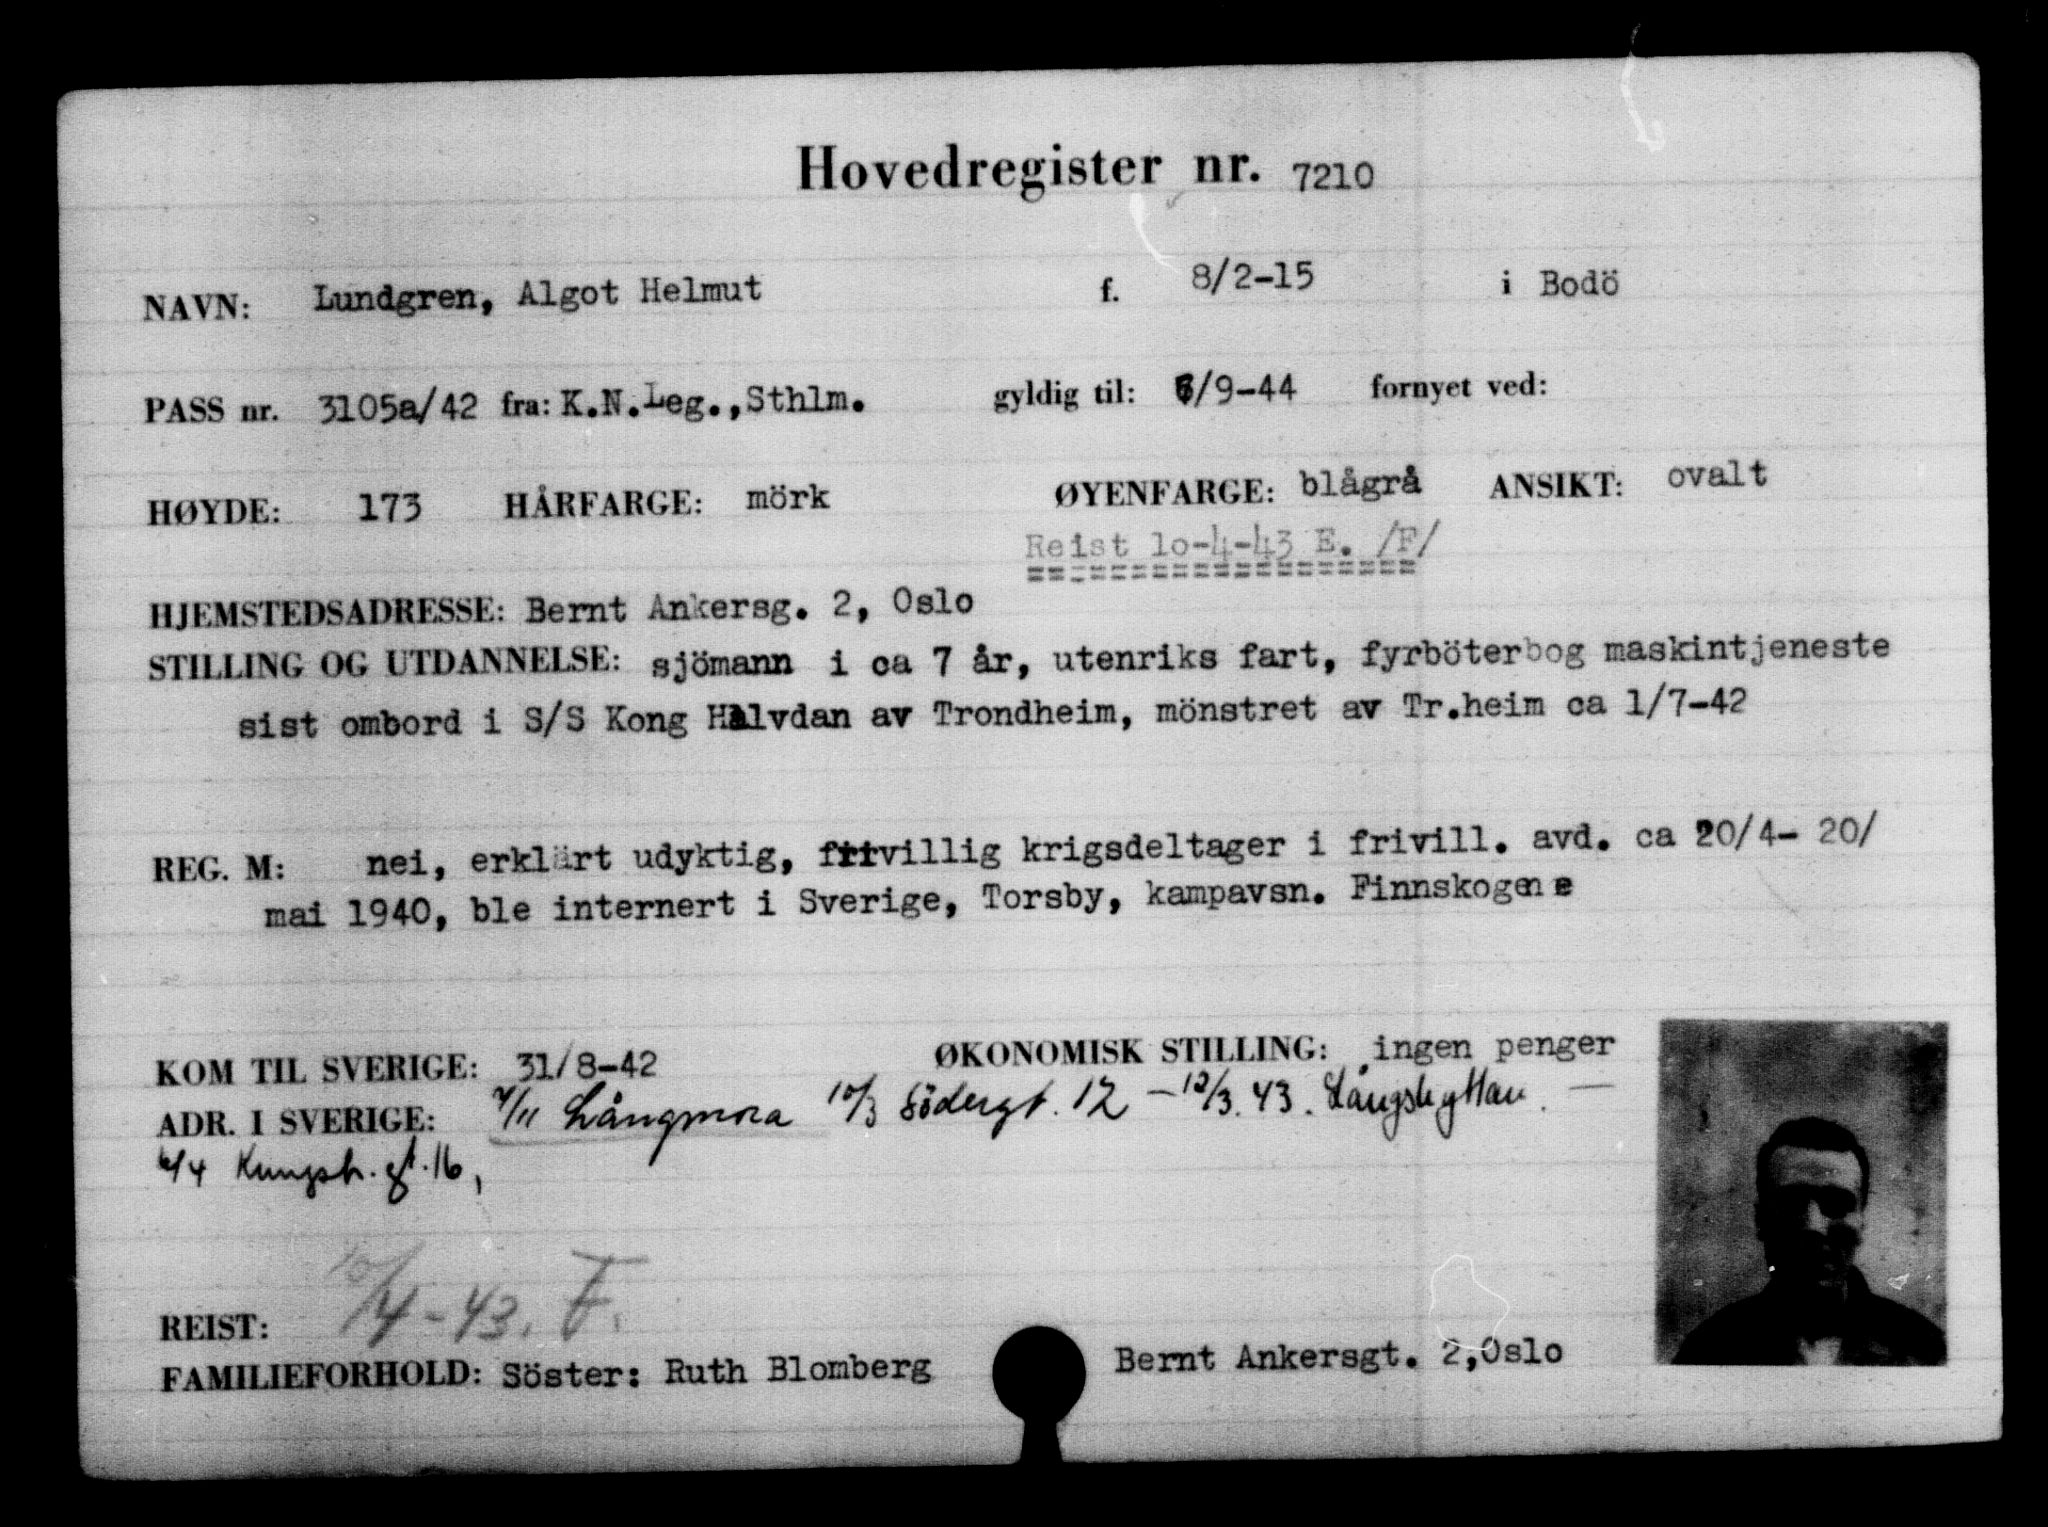 Hovedregister nr. 7210
NAVN: Lundgren, Algot Helmut f. 8/2-15 i Bodö
PASS nr. 3105a/42 fra: K.N.Leg.,Sthlm. gyldig til: 6/9-44 fornyet ved:
HØYDE: 173 HÅRFARGE: mörk ØYENFARGE: blågrå ANSIKT: ovalt
Reist 10-4-43 E. /F/
HJEMSTEDSADRESSE: Bernt Ankersg. 2, Oslo
STILLING OG UTDANNELSE: sjömann i ca 7 år, utenriks fart, fyrböterbog maskintjeneste
sist ombord i S/S Kong Halvdan av Trondheim, mönstret av Tr.heim ca 1/7-42
REG. M: nei, erklärt udyktig, frivillig krigsdeltager i frivill. avd. ca 20/4- 20/
mai 1940, ble internert i Sverige, Torsby, kampavsn. Finnskogene
KOM TIL SVERIGE: 31/8-42 ØKONOMISK STILLING: ingen penger
ADR. I SVERIGE: /11 Långmora 10/3 Södergt. 12 – 12/3. 43. Långshyttan. —
6/4 Kungsh. gt. 16,
REIST: 10/4-43. F.
FAMILIEFORHOLD: Söster: Ruth Blomberg Bernt Ankersgt. 2,Oslo